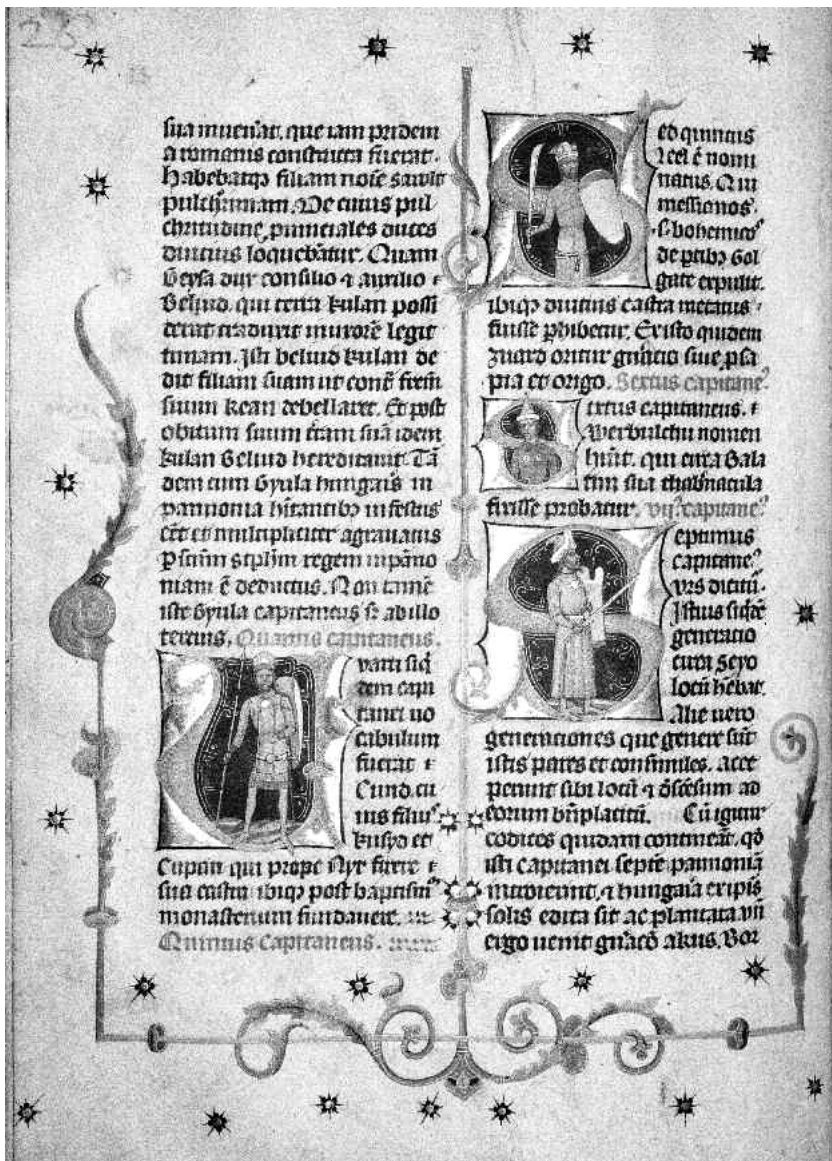 sua inuenerat. que iam pridem
a romanis constructa fuerat.
Habebatqꝫ filiam noīe sarolt
pulchrimam. De cuius pul
chritudine ꝓuinciales duces
diucius loquebātur. Quam
Geysa dux consilio ⁊ auxilio
Beliud. qui terrā kulan possi
debat traduxit in uxorē legit
timam. Isti beliud kulan de
dit filiam suam ut contˢ frēm
suum kean debellaret. Et post
obitum suum ēram suā idem
kulan Beliud hereditauit. Tā
dem cum Gyula hungaris in
pannonia hītantibꝫ infestus
eēt et multipliciter agrauaēt
ꝑ scūm stephm regem in pāno
niam ē deductus. Non tamē
iste Gyula capitaneus sꝫ ab illo
tercius. Quartus capitaneus.
varti siqͥ
dem capi
tanei uo
cabulum
fuerat
Cund. cu
ius filiiˀ
kusyd et
Cupan qui prope Nyr fixere
sua castra ibiqꝫ post baptismū
monasterium fundauere.
Quintus capitaneus.
ed quintus
leel ē nomi
natus. Qui
messianos
⁊ bohemicosˀ
de ꝑtibꝫ Gol
gate expulit.
ibiqꝫ diutius castra metatus
fuisse ꝑhibetur. Ex isto quidem
zuard oritur gn̄acio siue ꝓsa
pia et origo. Sextus capitaneˀ
extus capitaneus.
Werbulchu nomen
hūit. qui circa Bala
tim sua thabnacula
fixisse probatur. vijˀ capitaneˀ
eptimus
capitaneˀ
vrs dicitū.
Istius siqͥdē
generacio
circa Seyo
locū hēbat.
Alie uero
generaciones que genere sūt
istis pares et consimiles. acce
perunt sibi locū ⁊ dscēsum ad
eorum bn̄placitū. Cū igitur
codices quidam contineāt. qd
isti capitanei septē pannoniā
introierint. ⁊ hungaria ex ip̄is
solis edita sit ac plantata. vn̄
ergo uenit gn̄acō akus. Bor